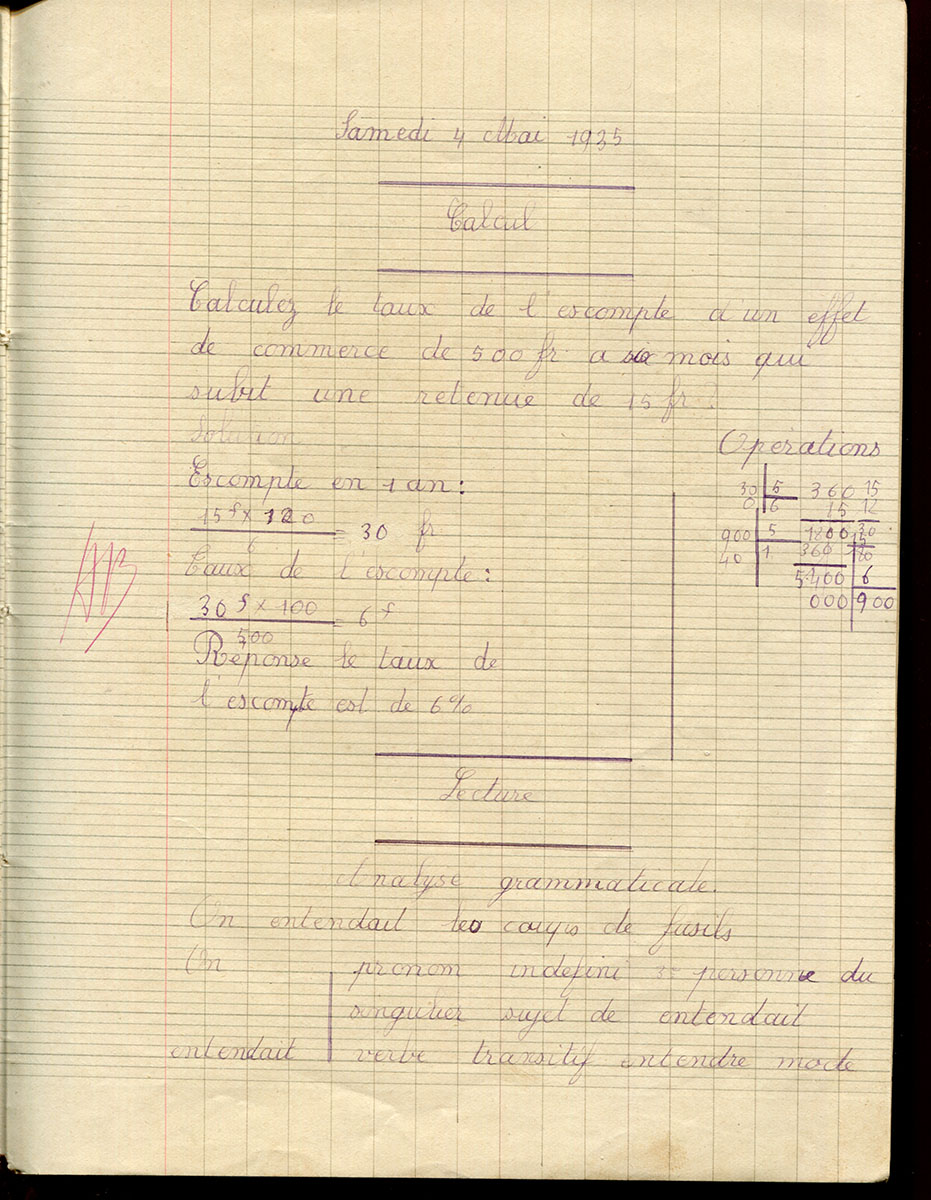 Samedi 4 Mai 1935
Calcul
Calculez le taux de l'escompte d'un effet
de commerce de 500 fr a six mois qui
subit une retenue de 15 fr.
Solution
Escompte en 1 an :
15 f x 120 = 30 fr
6
Taux de l'escompte :
30 f x 100 = 6 f
500
Réponse le taux de
l'escompte est de 6%
Opérations
30 5 360 15
0 6 15 12
900 5 1800 30
40 1 360 15
5400 6
000 900
Lecture
Analyse grammaticale.
On entendait les coups de fusils
On pronom indéfini 3e personne du
singulier sujet de entendait
entendait verbe transitif entendre mode